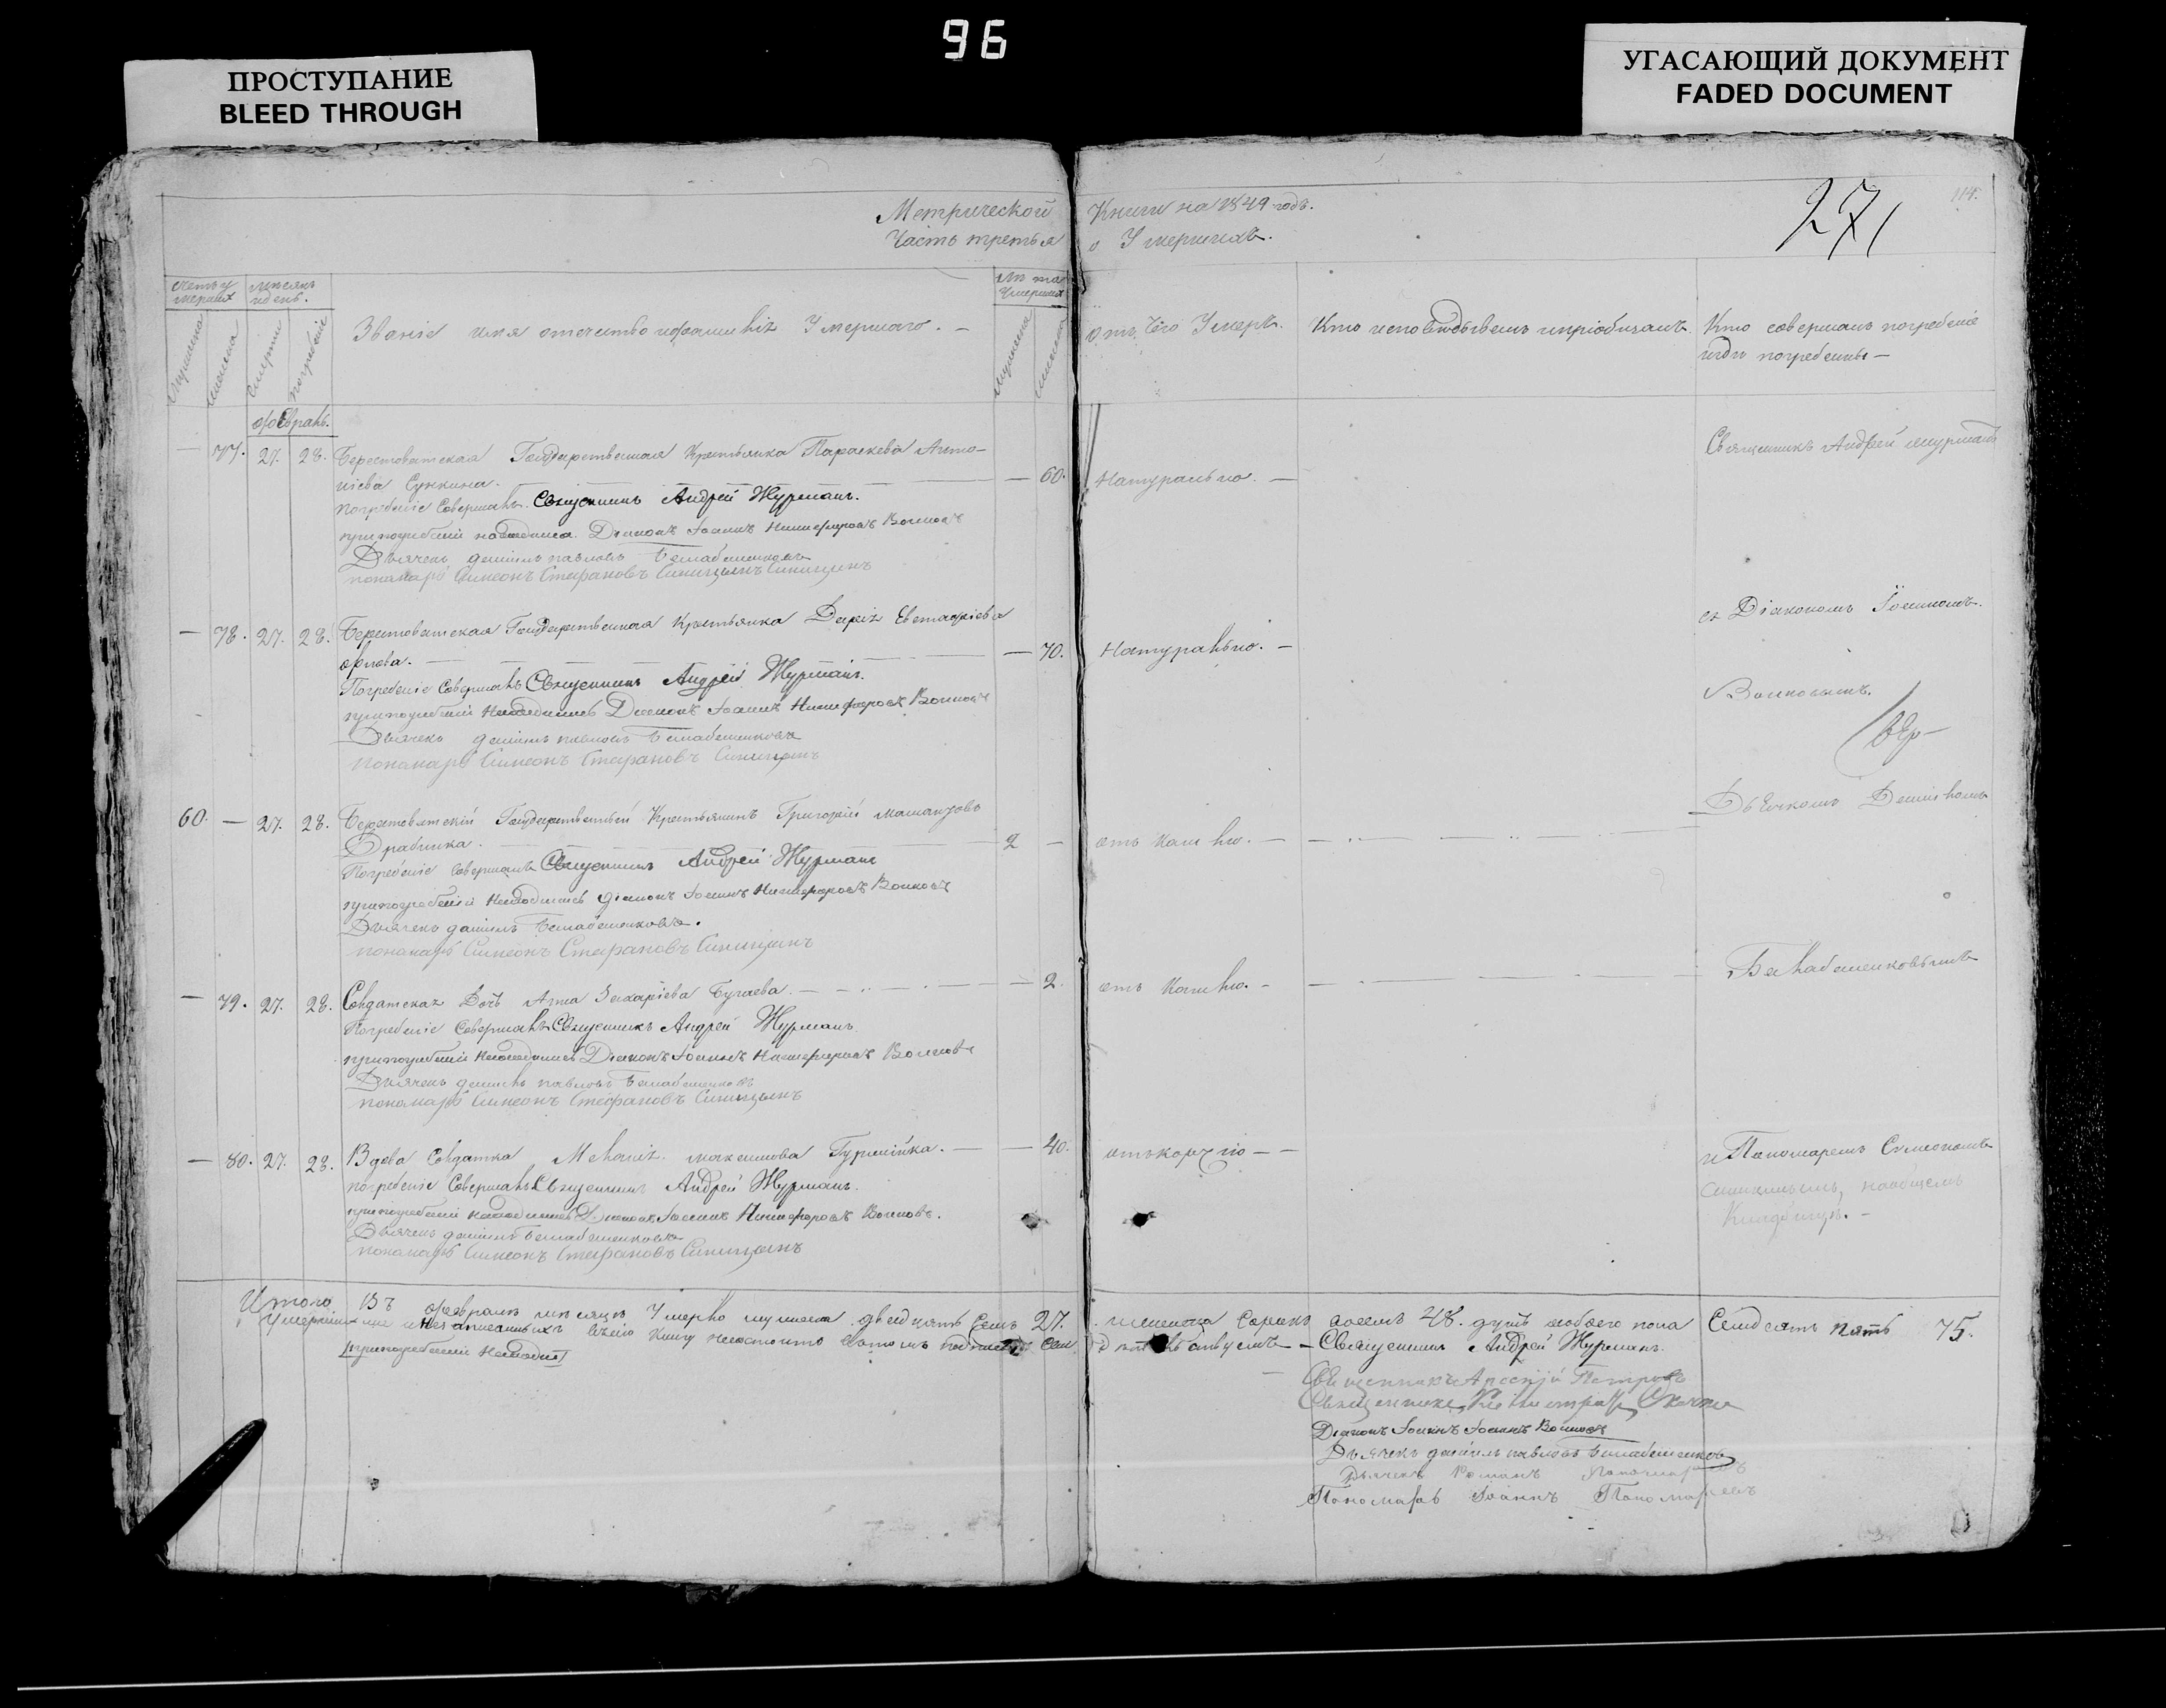 96
ПРОСТУПАНИЕ
BLEED THROUGH
УГАСАЮЩИЙ ДОКУМЕНТ
FADED DOCUMENT
Метрической Книги на 1849 годъ.
Часть третья о Умершихъ.
114.
271
мѣсяцъ и день.
мужеска женска смерти погребенія
Званіе имя отечество и фамилія Умершаго. —
мужеска женска
отъ чего Умеръ. Кто исповѣдывалъ и пріобщалъ. Кто совершалъ погребеніе
и гдѣ погребены —
Февраль.
— 77. 27. 28. Берестоватская Государственная Крестьянка Параскева Анто-
ніева — 60. Натурально. —
Погребеніе Совершалъ Священникъ Андрей Журманъ.
при погребеніи находились Діаконъ Іоаннъ Никифоровъ Волковъ
Дьячекъ Даніилъ Павловъ Белабешенковъ
пономарь Симеонъ Стефановъ Синицынъ
Священникъ Андрей Журманъ
— 78. 27. 28. Берестоватская Государственная Крестьянка Дарія Евстафіева
Орлова. — 70. Натурально. —
Погребеніе Совершалъ Священникъ Андрей Журманъ.
при погребеніи находились Діаконъ Іоаннъ Никифоровъ Волковъ
Дьячекъ Даніилъ Павловъ Белабешенковъ
пономарь Симеонъ Стефановъ Синицынъ
съ Діакономъ Іоанномъ
Волковымъ.
60. — 27. 28. Берестоватскій Государственный Крестьянинъ Григорій
Драбинка. 2 — отъ кашлю. —
Погребеніе совершалъ Священникъ Андрей Журманъ
при погребеніи находились Діаконъ Іоаннъ Никифоровъ Волковъ
Дьячекъ Даніилъ Белабешенковъ.
пономарь Симеонъ Стефановъ Синицынъ
Дьячкомъ Даніиломъ
— 79. 27. 28. Солдатская Дочь Анна Захаріева Бугаева. — 2. отъ кашлю. —
Погребеніе Совершалъ Священникъ Андрей Журманъ.
при погребеніи находились Діаконъ Іоаннъ Никифоровъ Волковъ
Дьячекъ Даніилъ Павловъ Белабешенковъ
пономарь Симеонъ Стефановъ Синицынъ
Белабешенковымъ
— 80. 27. 28. Вдова Солдатка Меланія Максимова — 40. отъ корчію — —
погребеніе Совершалъ Священникъ Андрей Журманъ.
при погребеніи находились Діаконъ Іоаннъ Никифоровъ Волковъ.
Дьячекъ Даніилъ Белабешенковъ
пономарь Симеонъ Стефановъ Синицынъ
и Пономаремъ Симеономъ
Синицынымъ, на общемъ
Кладбищѣ. —
Итого Въ февралѣ мѣсяцѣ Умерло мужеска двадцать семь 27. женска сорокъ восемь 48. душъ обоего пола Семдесятъ пять 75.
— Священникъ Андрей Журманъ.
Священникъ Арсеній Петровъ
Священникъ
Діаконъ Іоаннъ Іоаннъ Волковъ
Дьячекъ Даніилъ Павловъ Белабешенковъ
Дьячекъ Романъ
Пономарь Іоаннъ Пономаревъ